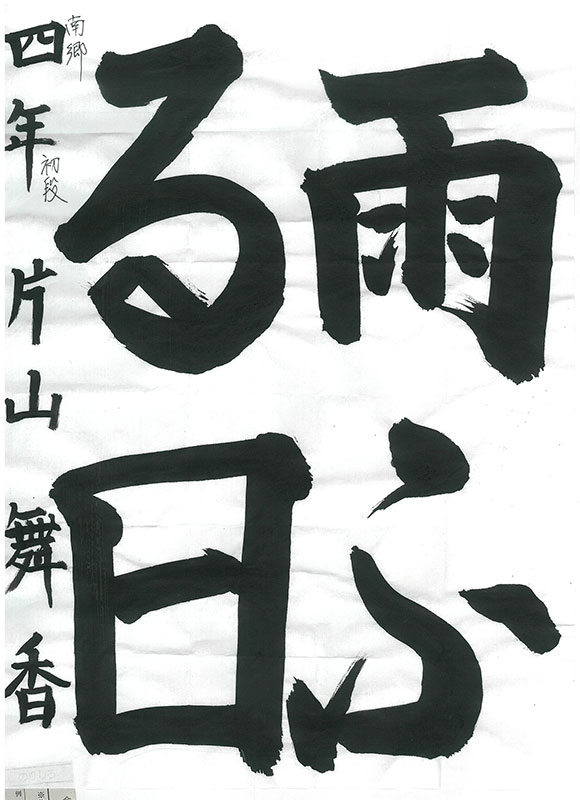 雨ふ
る日
南郷
初段
四年 片山 舞香